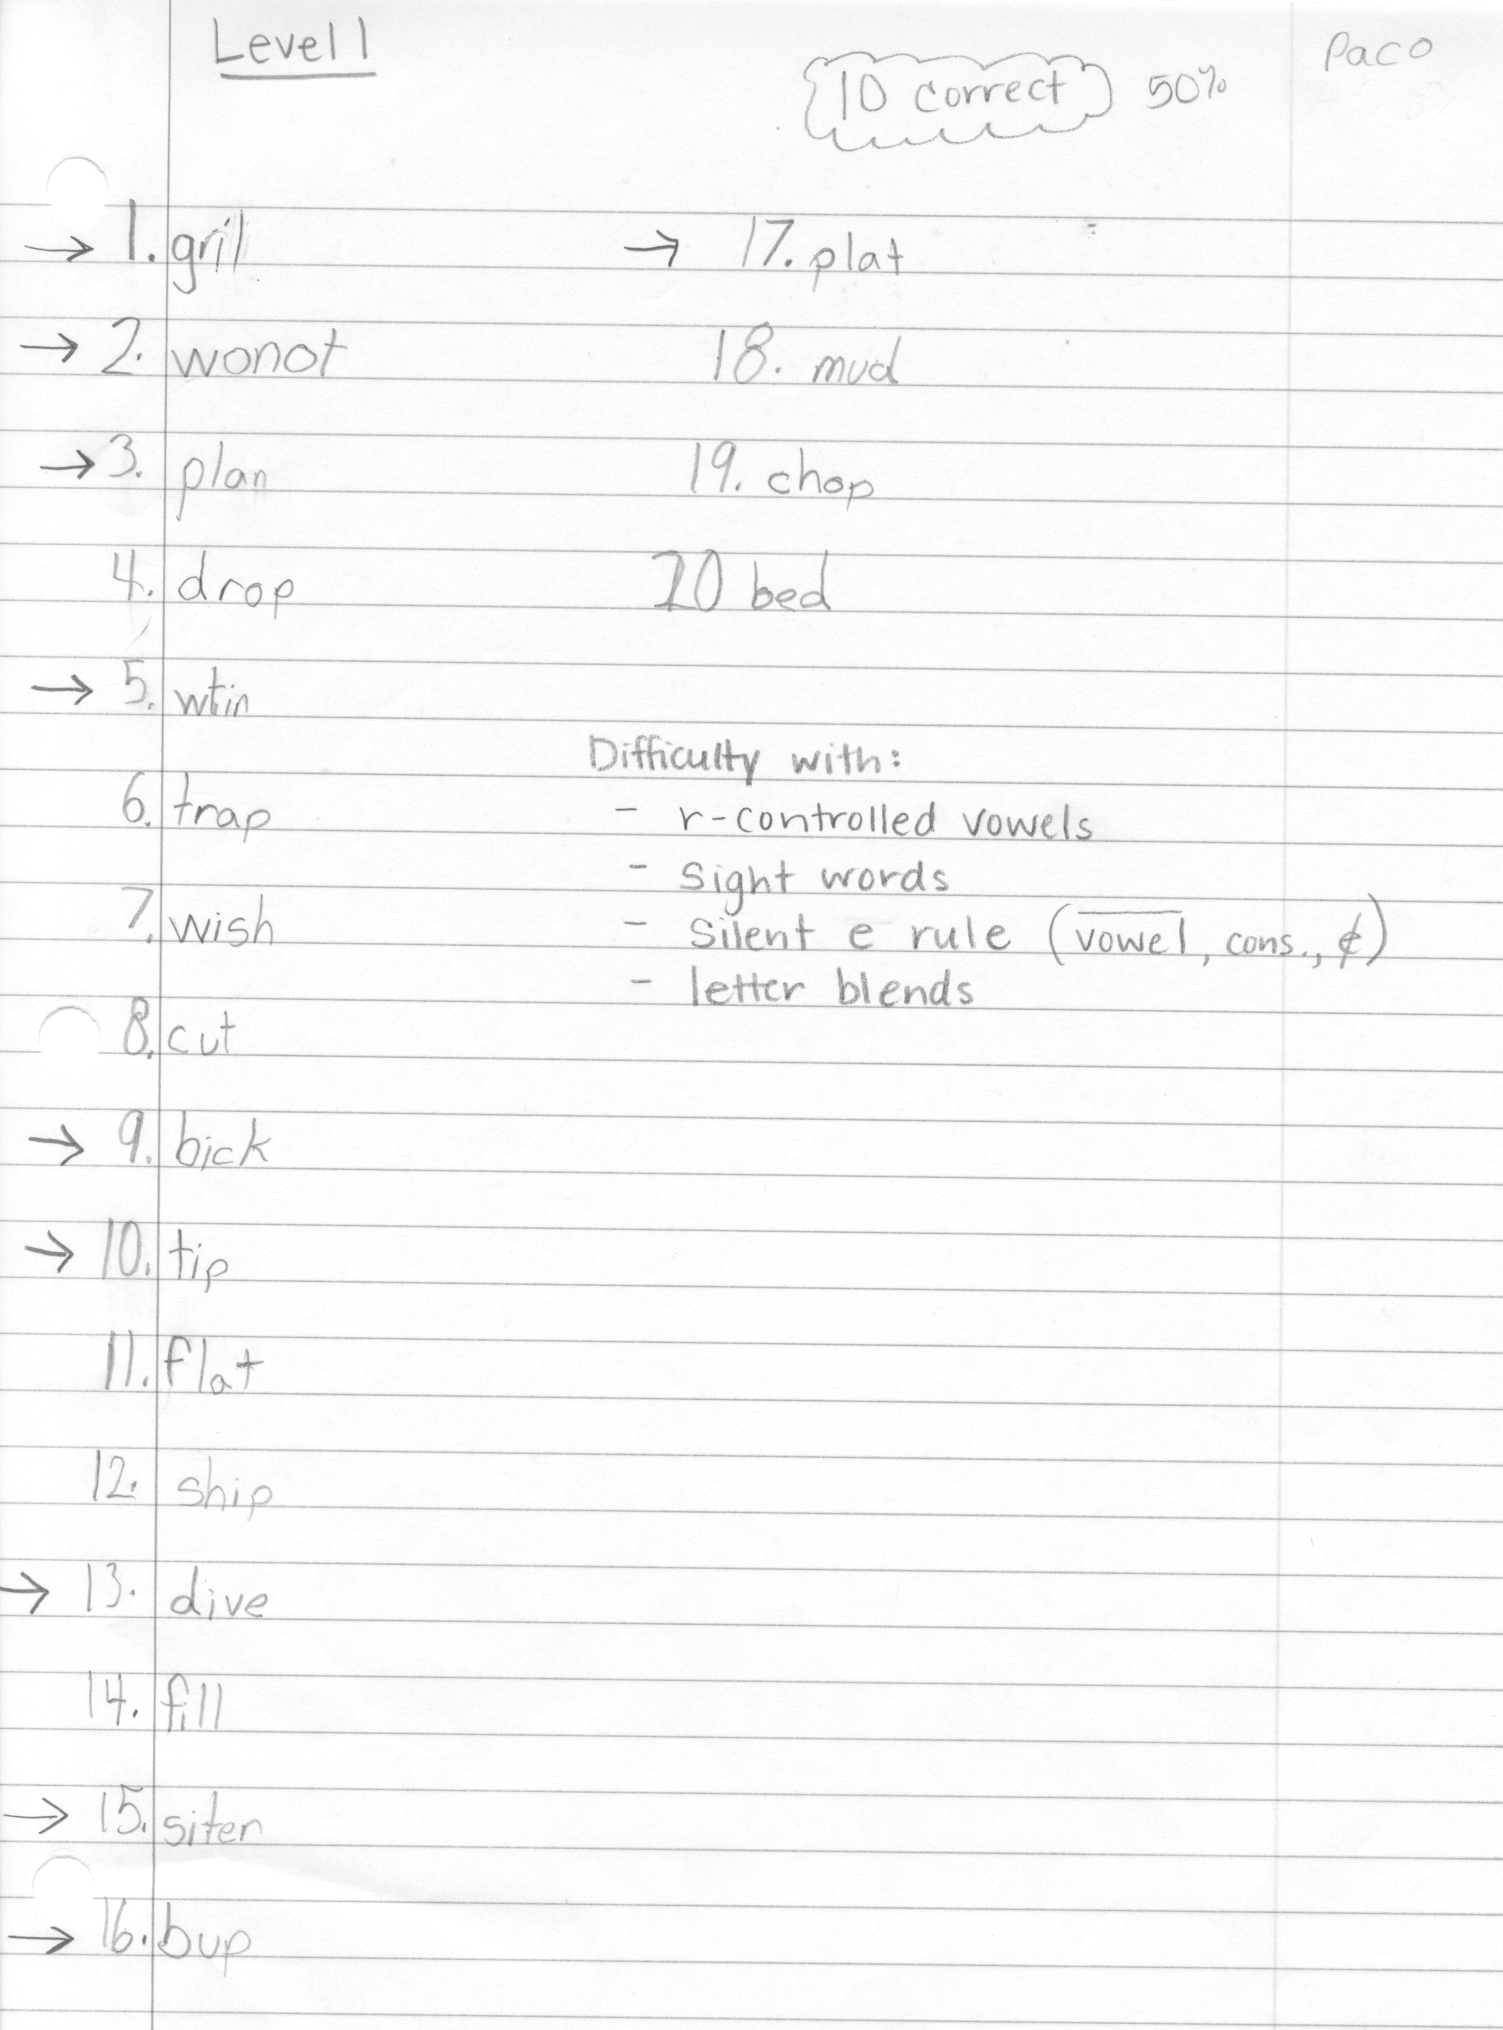 Level 1
10 correct 50%
Paco
→ 1. gril
→ 2. wonot
→ 3. plan
4. drop
→ 5. wtin
6. trap
7. wish
8. cut
→ 9. bick
→ 10. tip
11. flat
12. ship
→ 13. dive
14. fill
→ 15. siter
→ 16. bup
→ 17. plat
18. mud
19. chop
20 bed
Difficulty with:
- r-controlled vowels
- sight words
- silent e rule (vowel, cons., ɇ)
- letter blends